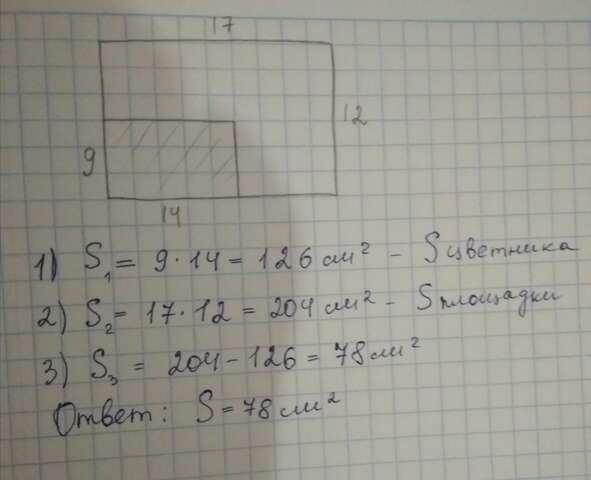 17
12
9
14
1) S₁ = 9·14 = 126 см² - S цветника
2) S₂ = 17·12 = 204 см² - S площадки
3) S₃ = 204 - 126 = 78 см²
Ответ: S = 78 см²